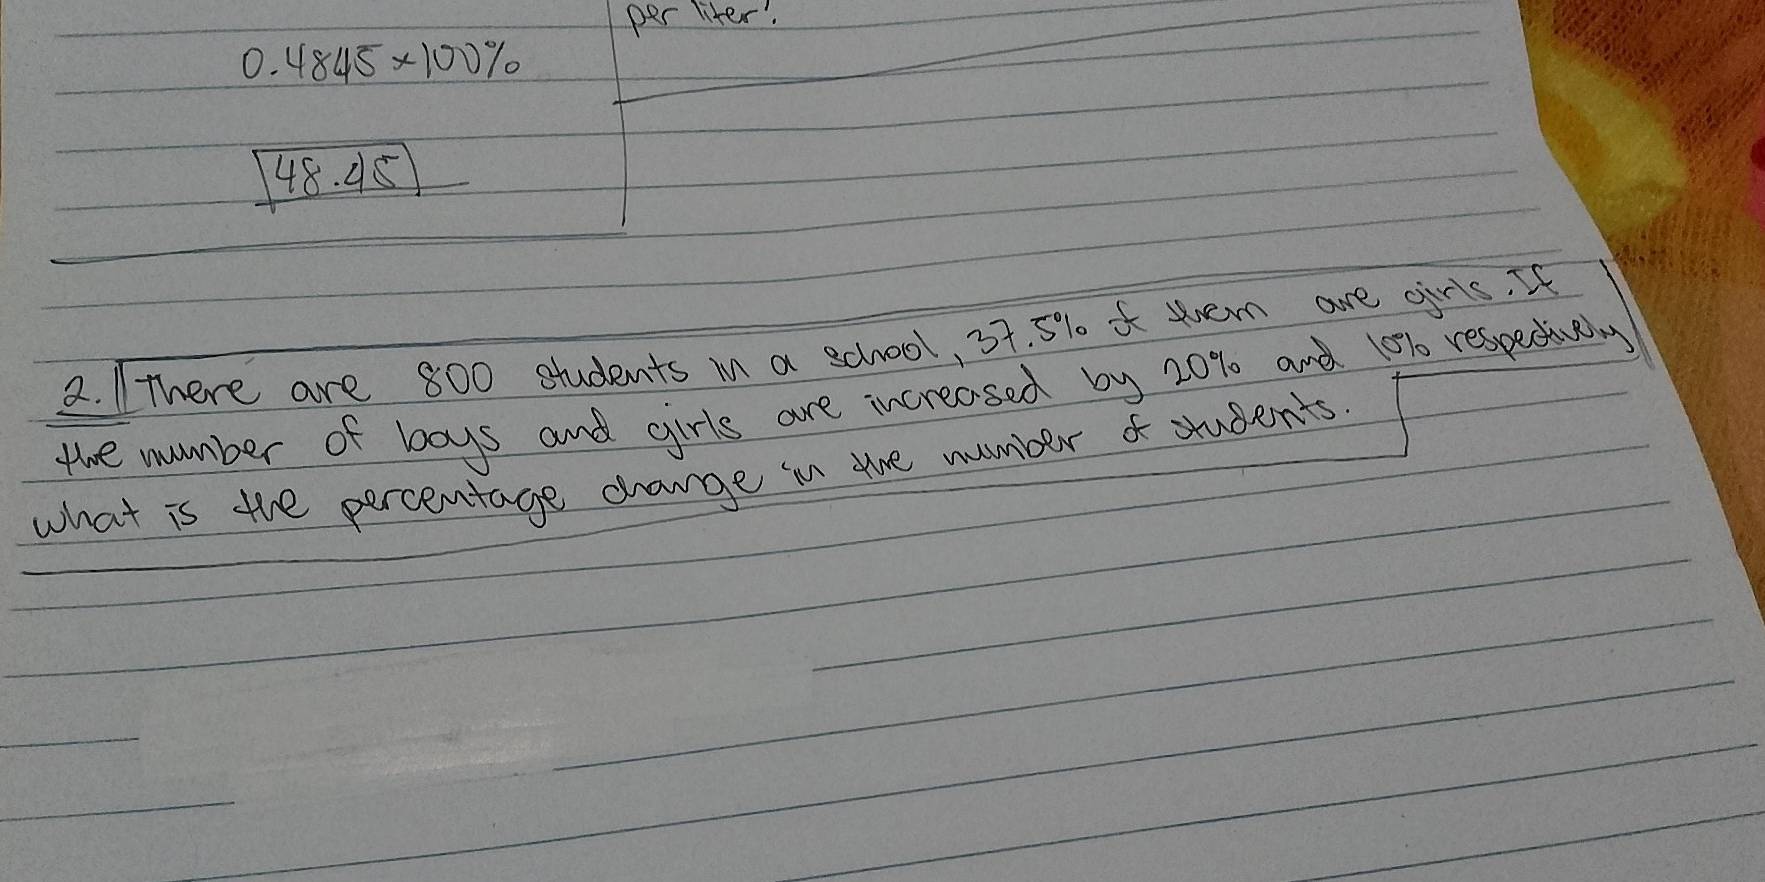 per liter!
0.4845 × 100%
48.45
2. There are 800 students in a school, 37.5% of them are girls. If
the number of boys and girls are increased by 20% and 10% respectively
what is the percentage change in the number of students.